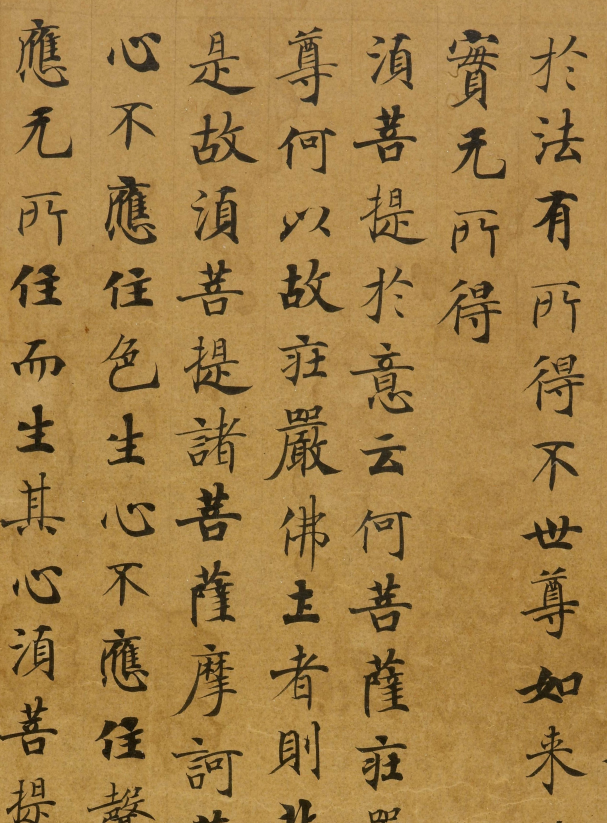 於法有所得不世尊如来
實无所得
湏菩提於意云何菩薩莊
尊何以故莊嚴佛土者則
是故湏菩提諸菩薩摩訶
心不應住色生心不應住聲
應无所住而生其心湏菩提